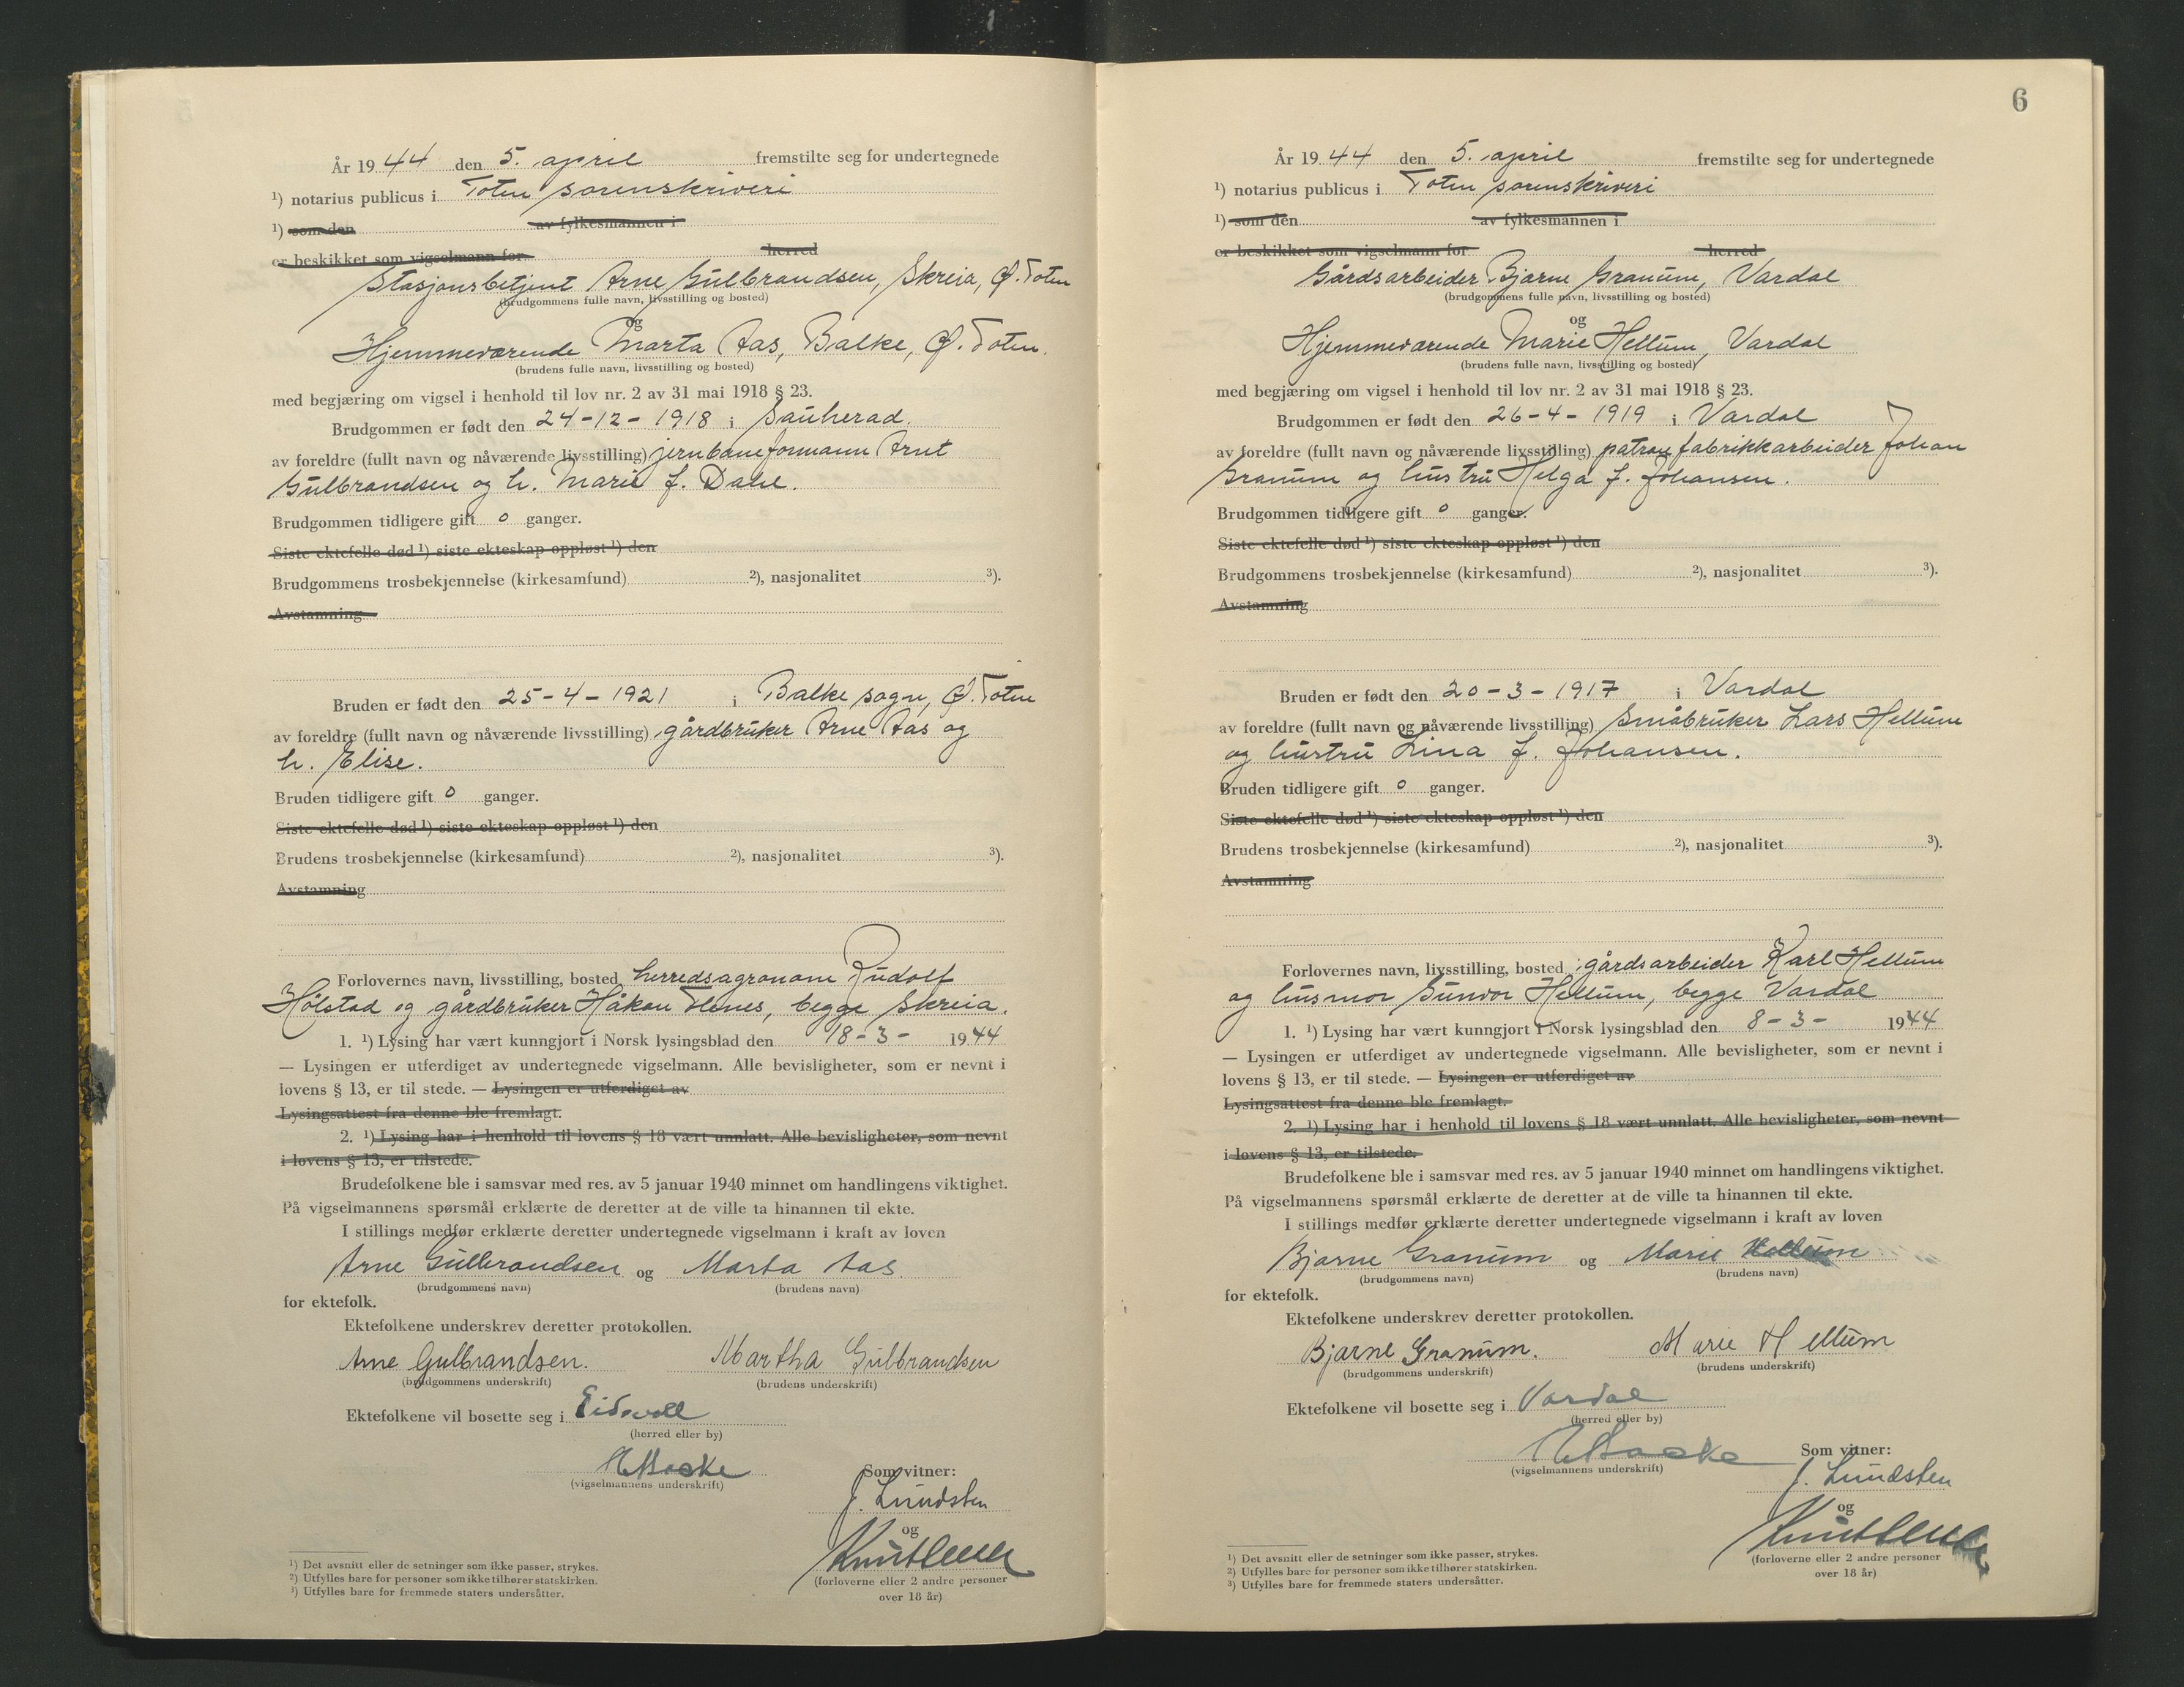 År 1944 den 5. april fremstilte seg for undertegnede
¹) notarius publicus i Toten sorenskriveri
¹) som den av fylkesmannen i
er beskikket som vigselmann for herred
Stasjonsbetjent Arne Gulbrandsen, Skreia, Ø. Toten
(brudgommens fulle navn, livsstilling og bosted)
og
Hjemmeværende Marta Aas, Balke, Ø. Toten.
(brudens fulle navn, livsstilling og bosted)
med begjæring om vigsel i henhold til lov nr. 2 av 31 mai 1918 § 23.
Brudgommen er født den 24-12-1918 i Sauherad.
av foreldre (fullt navn og nåværende livsstilling) jernbaneformann Arnt
Gulbrandsen og h. Marie f. Dahl.
Brudgommen tidligere gift 0 ganger.
Siste ektefelle død ¹) siste ekteskap oppløst ¹) den
Brudgommens trosbekjennelse (kirkesamfund) ²), nasjonalitet ³).
Avstamning
Bruden er født den 25-4-1921 i Balke sogn, Ø. Toten
av foreldre (fullt navn og nåværende livsstilling) gårdbruker Arne Aas og
h. Elise.
Bruden tidligere gift 0 ganger.
Siste ektefelle død ¹) siste ekteskap oppløst ¹) den
Brudens trosbekjennelse (kirkesamfund) ²), nasjonalitet ³).
Avstamning
Forlovernes navn, livsstilling, bosted herredsagronom Rudolf
Hølstad og gårdbruker Håkon, begge Skreia.
1. ¹) Lysing har vært kunngjort i Norsk lysingsblad den 18-3-1944
— Lysingen er utferdiget av undertegnede vigselmann. Alle bevisligheter, som er nevnt i
lovens § 13, er til stede. — Lysingen er utferdiget av
Lysingsattest fra denne ble fremlagt.
2. ¹) Lysing har i henhold til lovens § 18 vært unnlatt. Alle bevisligheter, som nevnt
i lovens § 13, er tilstede.
Brudefolkene ble i samsvar med res. av 5 januar 1940 minnet om handlingens viktighet.
På vigselmannens spørsmål erklærte de deretter at de ville ta hinannen til ekte.
I stillings medfør erklærte deretter undertegnede vigselmann i kraft av loven
Arne Gulbrandsen og Marta Aas
(brudgommens navn) (brudens navn)
for ektefolk.
Ektefolkene underskrev deretter protokollen.
Arne Gulbrandsen. Martha Gulbrandsen
(brudgommens underskrift) (brudens underskrift)
Ektefolkene vil bosette seg i Eidsvoll
(herred eller by)
(vigselmannens underskrift)
Som vitner:
J. Lundsten
og
(forloverne eller 2 andre personer
over 18 år)
¹) Det avsnitt eller de setninger som ikke passer, strykes.
²) Utfylles bare for personer som ikke tilhører statskirken.
³) Utfylles bare for fremmede staters undersåtter.
6
År 1944 den 5. april fremstilte seg for undertegnede
¹) notarius publicus i Toten sorenskriveri
¹) som den av fylkesmannen i
er beskikket som vigselmann for herred
Gårdsarbeider Bjarne Granum, Vardal
(brudgommens fulle navn, livsstilling og bosted)
og
Hjemmeværende Marie Hellum, Vardal
(brudens fulle navn, livsstilling og bosted)
med begjæring om vigsel i henhold til lov nr. 2 av 31 mai 1918 § 23.
Brudgommen er født den 26-4-1919 i Vardal
av foreldre (fullt navn og nåværende livsstilling) patronfabrikkarbeider Johan
Granum og hustru Helga f. Johansen.
Brudgommen tidligere gift 0 ganger.
Siste ektefelle død ¹) siste ekteskap oppløst ¹) den
Brudgommens trosbekjennelse (kirkesamfund) ²), nasjonalitet ³).
Avstamning
Bruden er født den 20-3-1917 i Vardal
av foreldre (fullt navn og nåværende livsstilling) Småbruker Lars Hellum
og hustru Lina f. Johansen.
Bruden tidligere gift 0 ganger.
Siste ektefelle død ¹) siste ekteskap oppløst ¹) den
Brudens trosbekjennelse (kirkesamfund) ²), nasjonalitet ³).
Avstamning
Forlovernes navn, livsstilling, bosted gårdsarbeider Karl Hellum
og husmor Gunvor Hellum, begge Vardal
1. ¹) Lysing har vært kunngjort i Norsk lysingsblad den 8-3-1944
— Lysingen er utferdiget av undertegnede vigselmann. Alle bevisligheter, som er nevnt i
lovens § 13, er til stede. — Lysingen er utferdiget av
Lysingsattest fra denne ble fremlagt.
2. ¹) Lysing har i henhold til lovens § 18 vært unnlatt. Alle bevisligheter, som nevnt
i lovens § 13, er tilstede.
Brudefolkene ble i samsvar med res. av 5 januar 1940 minnet om handlingens viktighet.
På vigselmannens spørsmål erklærte de deretter at de ville ta hinannen til ekte.
I stillings medfør erklærte deretter undertegnede vigselmann i kraft av loven
Bjarne Granum og Marie Hellum
(brudgommens navn) (brudens navn)
for ektefolk.
Ektefolkene underskrev deretter protokollen.
Bjarne Granum. Marie Hellum
(brudgommens underskrift) (brudens underskrift)
Ektefolkene vil bosette seg i Vardal
(herred eller by)
(vigselmannens underskrift)
Som vitner:
J. Lundsten
og
(forloverne eller 2 andre personer
over 18 år)
¹) Det avsnitt eller de setninger som ikke passer, strykes.
²) Utfylles bare for personer som ikke tilhører statskirken.
³) Utfylles bare for fremmede staters undersåtter.